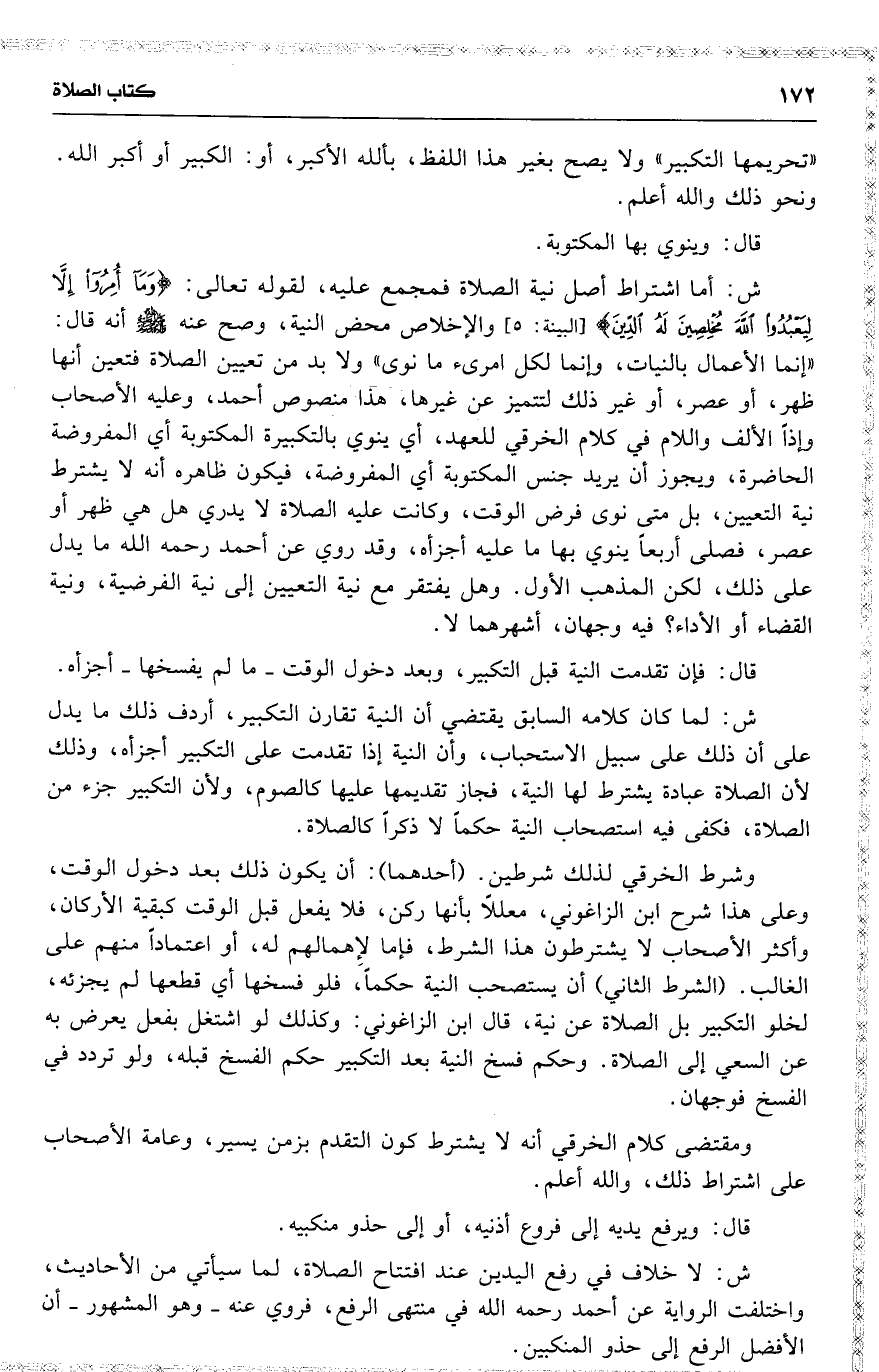 ١٧٢ كتاب الصلاة
«تحريمها التكبير» ولا يصح بغير هذا اللفظ، بألله الأكبر، أو: الكبير أو أكبر الله.
ونحو ذلك والله أعلم.
قال: وينوي بها المكتوبة.
ش: أما اشتراط أصل نية الصلاة فمجمع عليه، لقوله تعالى: ﴿وَمَآ أُمِرُوٓاْ إِلَّا
لِيَعْبُدُواْ ٱللَّهَ مُخْلِصِينَ لَهُ ٱلدِّينَ﴾ [البينة: ٥] والإخلاص محض النية، وصح عنه ﷺ أنه قال:
«إنما الأعمال بالنيات، وإنما لكل امرىء ما نوى» ولا بد من تعيين الصلاة فتعين أنها
ظهر، أو عصر، أو غير ذلك لتتميز عن غيرها، هذا منصوص أحمد، وعليه الأصحاب
وإذاً الألف واللام في كلام الخرقي للعهد، أي ينوي بالتكبيرة المكتوبة أي المفروضة
الحاضرة، ويجوز أن يريد جنس المكتوبة أي المفروضة، فيكون ظاهره أنه لا يشترط
نية التعيين، بل متى نوى فرض الوقت، وكانت عليه الصلاة لا يدري هل هي ظهر أو
عصر، فصلى أربعاً ينوي بها ما عليه أجزأه، وقد روي عن أحمد رحمه الله ما يدل
على ذلك، لكن المذهب الأول. وهل يفتقر مع نية التعيين إلى نية الفرضية، ونية
القضاء أو الأداء؟ فيه وجهان، أشهرهما لا.
قال: فإن تقدمت النية قبل التكبير، وبعد دخول الوقت ـ ما لم يفسخها ـ أجزأه.
ش: لما كان كلامه السابق يقتضي أن النية تقارن التكبير، أردف ذلك ما يدل
على أن ذلك على سبيل الاستحباب، وأن النية إذا تقدمت على التكبير أجزأه، وذلك
لأن الصلاة عبادة يشترط لها النية، فجاز تقديمها عليها كالصوم، ولأن التكبير جزء من
الصلاة، فكفى فيه استصحاب النية حكماً لا ذكراً كالصلاة.
وشرط الخرقي لذلك شرطين. (أحدهما): أن يكون ذلك بعد دخول الوقت،
وعلى هذا شرح ابن الزاغوني، معللاً بأنها ركن، فلا يفعل قبل الوقت كبقية الأركان،
وأكثر الأصحاب لا يشترطون هذا الشرط، فإما لإهمالهم له، أو اعتماداً منهم على
الغالب. (الشرط الثاني) أن يستصحب النية حكماً، فلو فسخها أي قطعها لم يجزئه،
لخلو التكبير بل الصلاة عن نية، قال ابن الزاغوني: وكذلك لو اشتغل بفعل يعرض به
عن السعي إلى الصلاة. وحكم فسخ النية بعد التكبير حكم الفسخ قبله، ولو تردد في
الفسخ فوجهان.
ومقتضى كلام الخرقي أنه لا يشترط كون التقدم بزمن يسير، وعامة الأصحاب
على اشتراط ذلك، والله أعلم.
قال: ويرفع يديه إلى فروع أذنيه، أو إلى حذو منكبيه.
ش: لا خلاف في رفع اليدين عند افتتاح الصلاة، لما سيأتي من الأحاديث،
واختلفت الرواية عن أحمد رحمه الله في منتهى الرفع، فروي عنه ـ وهو المشهور ـ أن
الأفضل الرفع إلى حذو المنكبين.